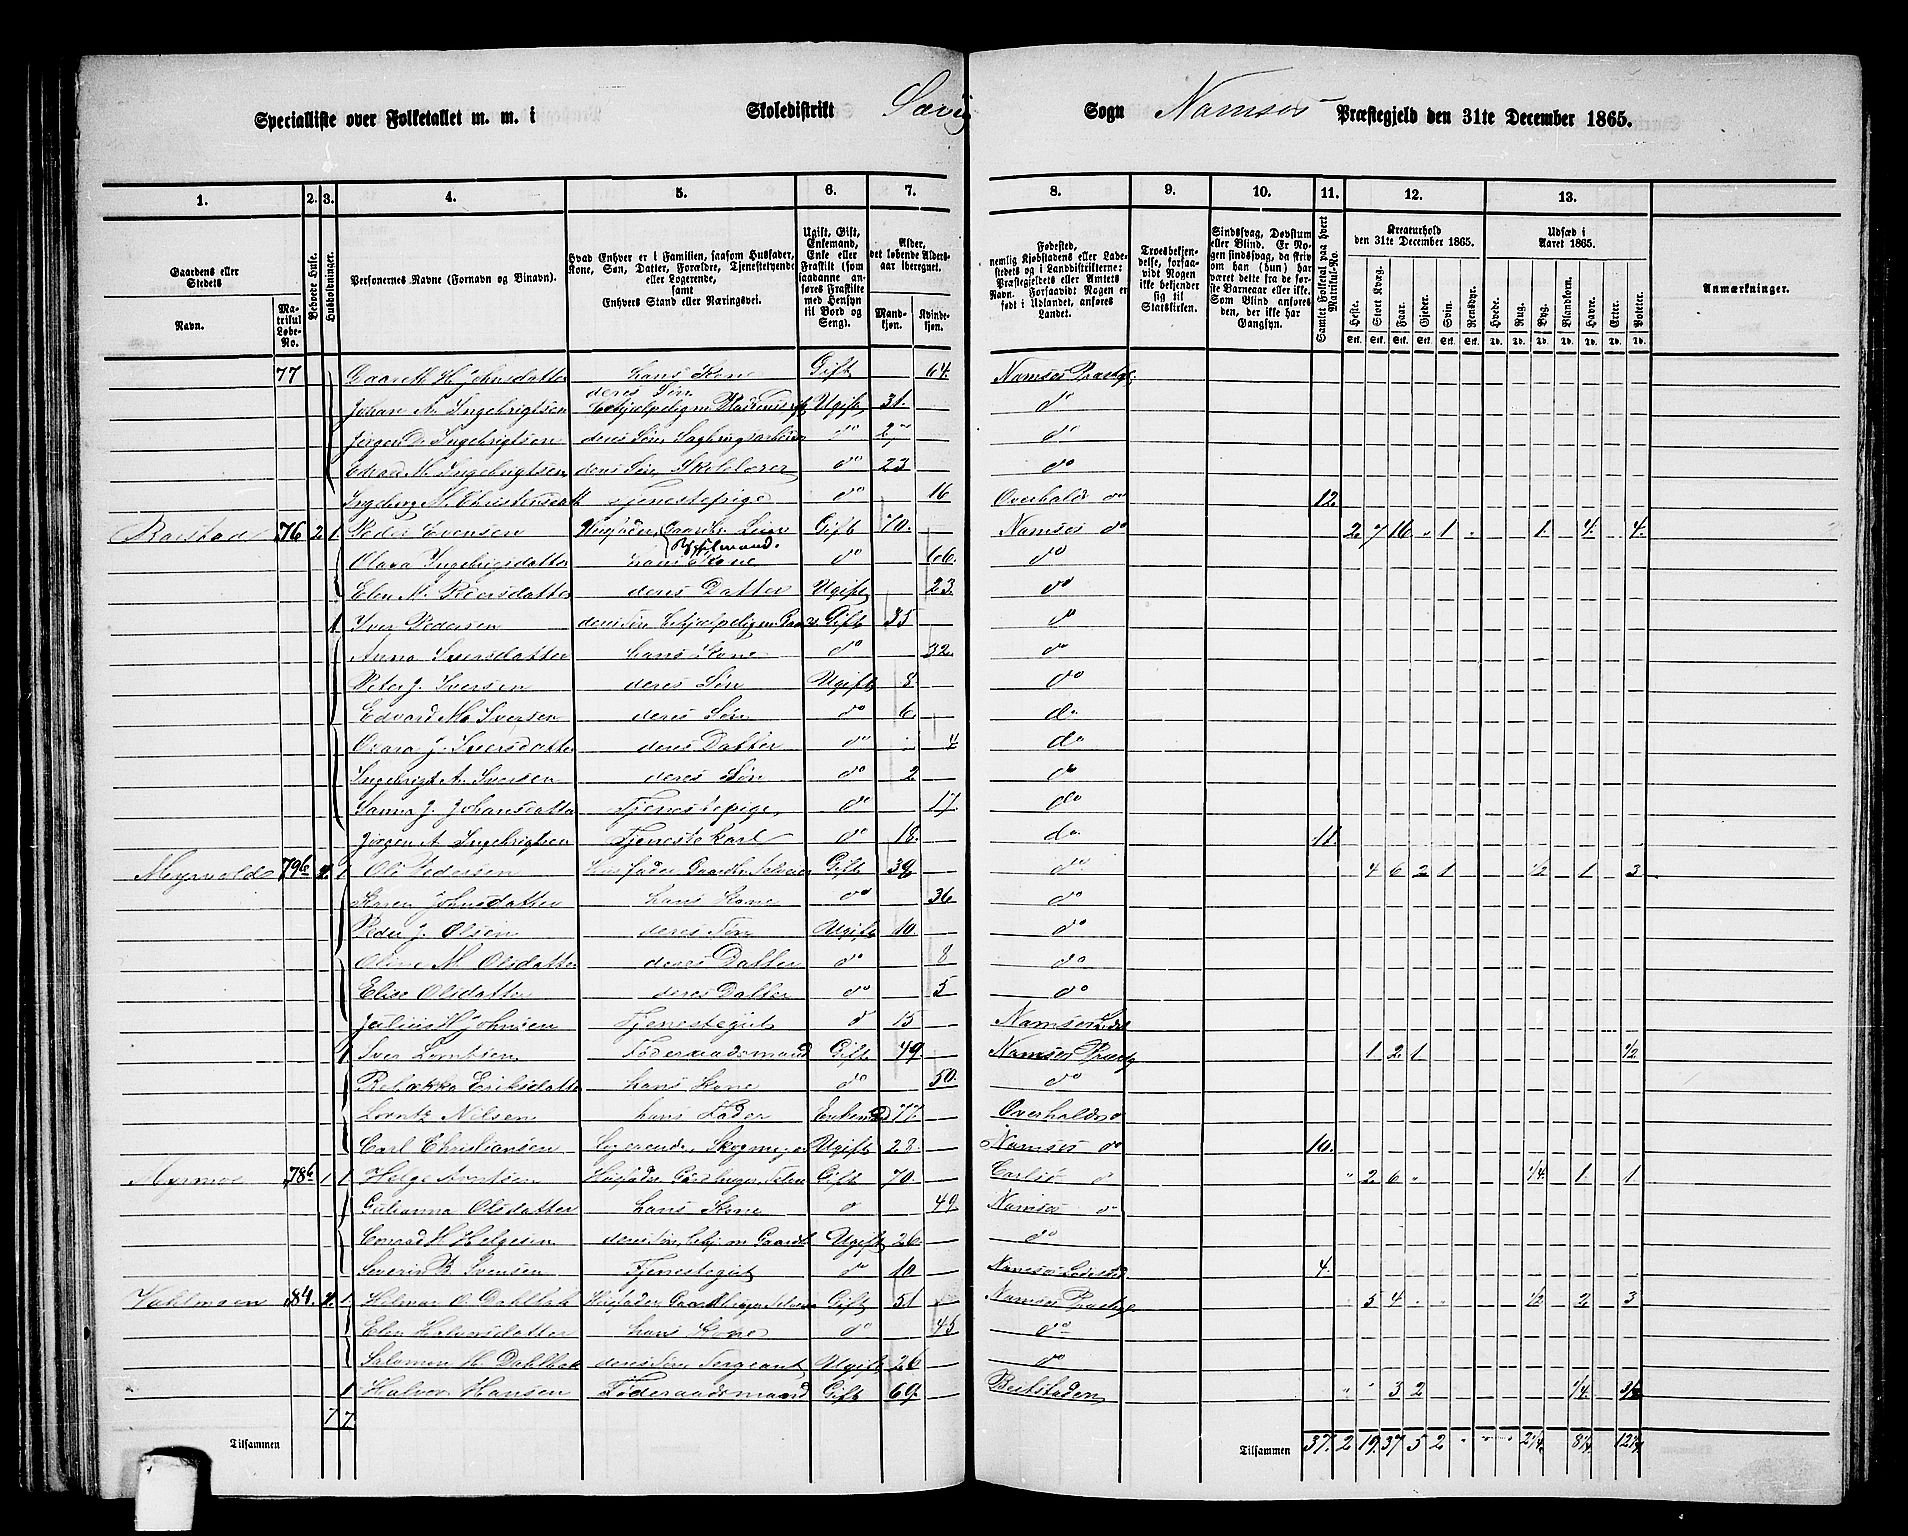 Specialliste over Folketallet m. m. i Skoledistrikt Sævig Sogn Namsos Præstegjeld den 31te December 1865.
1. 2. 3. 4. 5. 6. 7. 8. 9. 10. 11. 12. 13.
Gaardens eller Stedets Navn. Matrikul Løbe-No. Beboede Huse. Husholdninger. Personernes Navne (Fornavn og Binavn). Hvad Enhver er i Familien, saasom Husfader, Kone, Søn, Datter, Forældre, Tjenestetyende eller Logerende, samt Enhvers Stand eller Næringsvei. Ugift, Gift, Enkemand, Enke eller Fraskilt (som saadanne anføres Fraskilte med Hensyn til Bord og Seng). Alder, det løbende Aldersaar iberegnet. Mandkjøn. Kvindekjøn.
Fødested, nemlig Kjøbstadens eller Ladestedets og i Landdistrikterne: Præstegjeldets eller Amtets Navn. Forsaavidt Nogen er født i Udlandet, anføres Landet. Troesbekjendelse, forsaavidt Nogen ikke bekjender sig til Statskirken. Sindssvag, Døvstum eller Blind. Er Nogen sindssvag, da skrives om han (hun) har været dette fra de første Barneaar eller ikke. Som Blind anføres den, der ikke har Gangsyn. Samlet Folketal paa hvert Matrikul-No. Kreaturhold den 31te December 1865. Heste. Stort Kvæg. Faar. Gjeder. Svin. Rensdyr. Udsæd i Aaret 1865. Hvede. Rug. Byg. Blandkorn. Havre. Erter. Poteter. Anmærkninger.
77 H. Johnsdatter hans Kone Gift 64 Namsos Præstgl.
Johan A. Ingebrigtsen deres Søn Ugift 31. do
Ingebrigtsen deres Søn do do
M. Ingebrigtsen deres Søn Skolelærer do 23 do
Ingeborg M. Christensdatt Tjenestepige do 16 Overhald do 12.
76 2 1 Peder Husfader, Gaardbr. Gift 70. Namsos do 2 7 16 1 1. 4. 4.
Olava hans Kone do 66. do
Elen M. Pedersdatter deres Datter Ugift 23. do
1 Iver Pedersen deres Søn Gift 35 do
Anna Iversdatter hans Kone do 32. do
Peter J. Iversen deres Søn Ugift 8 do
Edvard M. Iversen deres Søn do 6. do
J. Iversdatter deres Datter do 4 do
Ingebrigt A. Iversen deres Søn do 2 do
J. Johansdatter Tjenestepige do 17 do
Jørgen A. Ingebrigtsen Tjenestekarl do 18. do 11.
796 2 1 Ole Pedersen Husfader Gaardbr. Selveier Gift 39 do 4 6 2 1 1/2 1 3
Karen Johnsdatter hans Kone do 36 do
Peder J. Olsen deres Søn Ugift 10. do
Oline M. Olsdatter deres Datter do 8 do
Elise Olsdatter deres Datter do 5 do
Julius H. Johnsen Tjenestegut do 15 Namsos Ladst
1 Iver Lorntsen Føderaadsmand Gift 49 Namsos Præstg 1 2 1 1/2
Rebækka Eriksdatter hans Kone do 50. do
Lorntz Nilsen hans Fader Enkemand 77. Overhald do
Carl Christiansen Logerende Ugift 28. Namsos do 10.
Myrmoe 786 1 1 Helge Arntsen Husfader Gift 70. Carlsø do 2 6 1/4. 1. 1
Gulianna Olsdatter hans Kone do 49 Namsos do
Conrad H. Helgesen deres Søn Ugift 26 do
Severin B. Svensen Tjenestegut do 10 Namsos Ladested 4.
84. 2. 1 O. Dahlbak Husfader Gift 51 Namsos Præstgl 5 4 1/2 2 3
Elen hans Kone do 45 do
Salomon H. Dahlbak deres Søn Sergeant Ugift 26 do
1 Halvor Hansen Føderaadsmand Gift 69. Beitstaden 3 2 1/4.
7 7.
Tilsammen Tilsammen 37. 2 19. 37 5 2 2 1/4. 8 1/4.